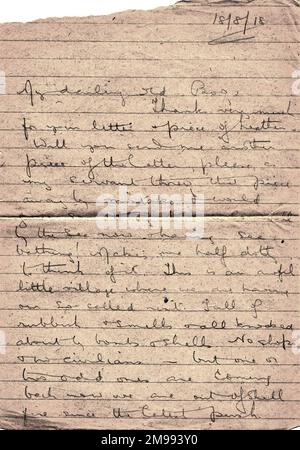 18/8/18
My darling old
Thanks very much
for your letter & piece of heather
Will you send me another
piece of the latter, please as
my servant threw that piece
away by mistake I would
the sea now having sea
bathing! Makes me half dotty
to think of it. This is an awful
little village where we are having
our so called rest. Full of
rubbish & smells & all knocked
about by bombs & shells. No shops
& no civilians — but one or
two odd ones are coming
back now we are out of shell
fire since the latest push
alamy
Image ID: 2M993Y0
www.alamy.com